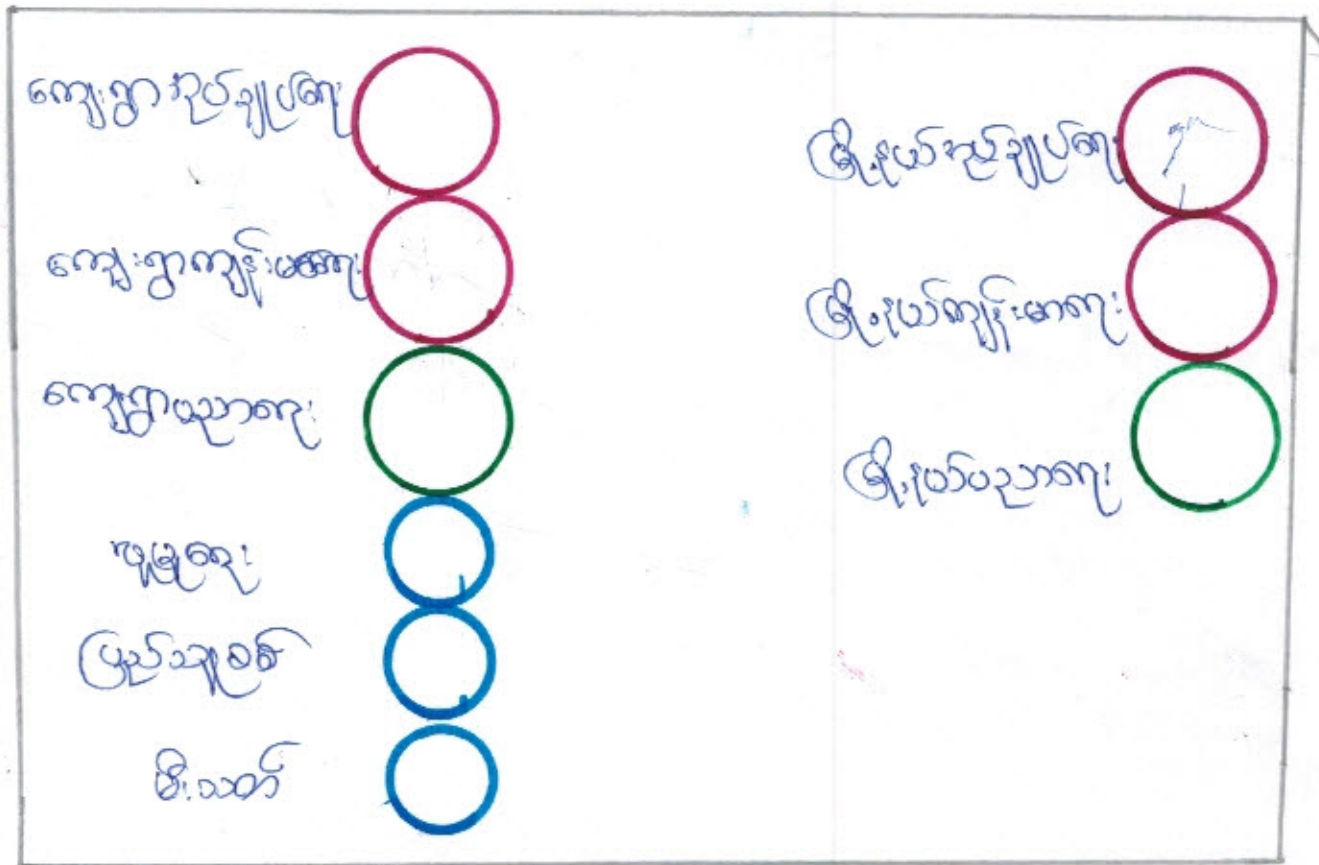 ကျေးရွာအုပ်ချုပ်ရေး
ကျေးရွာကျန်းမာရေး
ကျေးရွာပညာရေး
လူမှုရေး
ပြည်သူ့စစ်
မီးသတ်
မြို့နယ်အုပ်ချုပ်ရေး
မြို့နယ်ကျန်းမာရေး
မြို့နယ်ပညာရေး